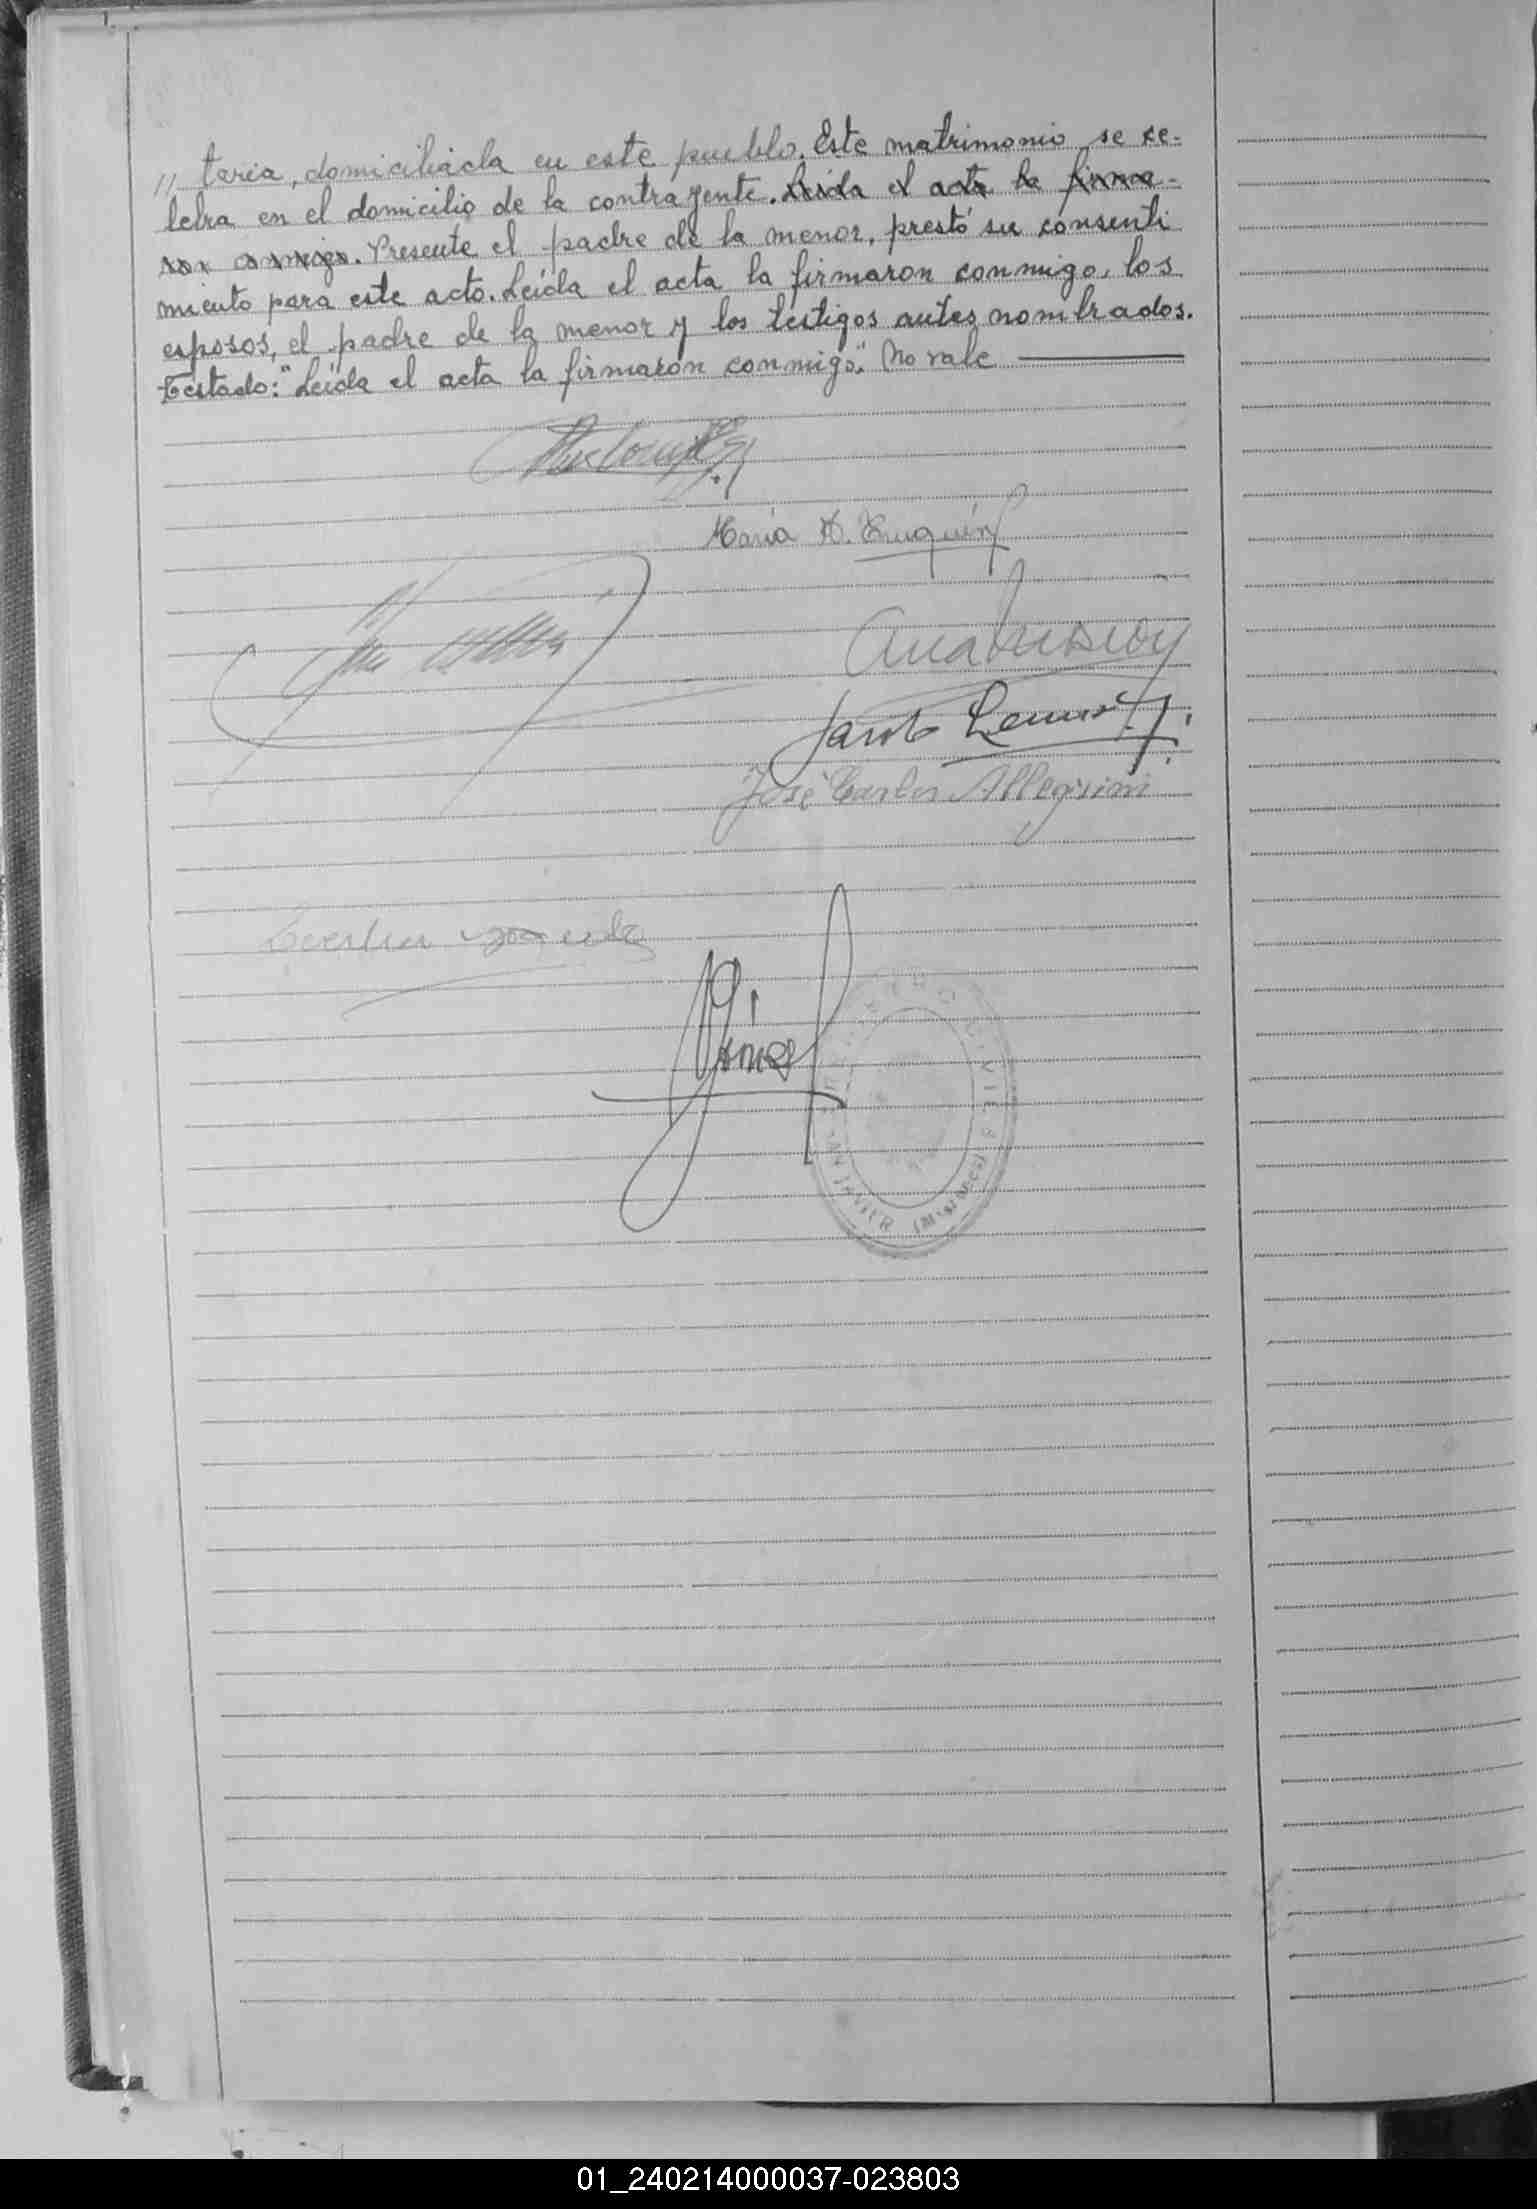 // taria, domiciliada en este pueblo. Este matrimonio se ce-
lebra en el domicilio de la contrayente. Leída el acta la firma-
ron conmigo. Presente el padre de la menor, prestó su consenti
miento para este acto. Leída el acta la firmaron conmigo, los
esposos, el padre de la menor y los testigos antes nombrados.
Testado: "Leída el acta la firmaron conmigo." No vale
María
Jacob
José Carlos Allegrini
REGISTRO CIVIL
SAN JAVIER (MISIONES)
01_240214000037-023803